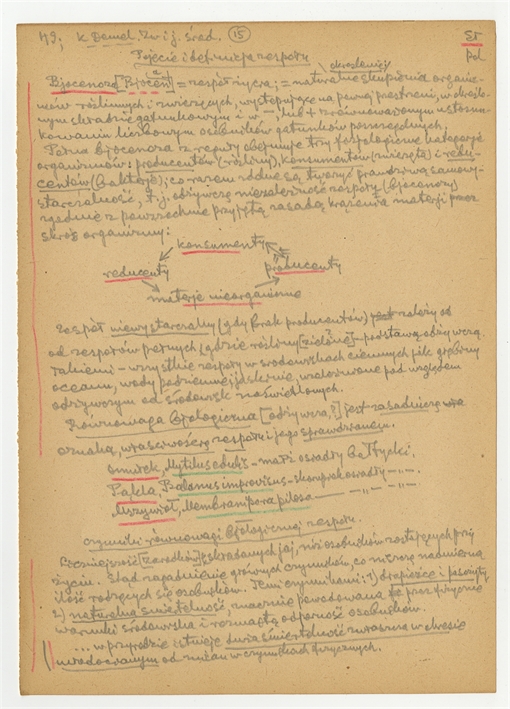 49; K. Demel. Zw i j. środ. 15
Pojęcie i definicja zespołu
pol
określonej
Biocenoza [Biocen] = zespół życia; = naturalne skupienia organiz-
mów roślinnych i zwierzęcych, występujące na pewnej przestrzeni, w określo-
nym składzie gatunkowym i w zrównoważonym ustosun-
kowaniu liczbowym osobników gatunków poszczególnych.
Pełna biocenoza z reguły obejmuje trzy fizjologiczne kategorje
organizmów: producentów (rośliny), konsumentów (zwierzęta) i redu-
centów (bakterje); co razem zdolne są tworzyć prawdziwą samowy-
starczalność, t.j. odżywczą niezależność zespołu (biocenozy)
zgodnie z powszechnie przyjętą zasadą krążenia materji przez
skroś organizmy:
konsumenty
reducenty producenty
materje nieorganiczne
Zespół niewystarczalny (gdy brak producentów) zależy od
od zespołów pełnych (gdzie rośliny [zielone] – podstawą odżywczą.
Takiemi – wszystkie zespoły w środowiskach ciemnych jak głębiny
oceanu, wody podziemne, jaskinie, uzależnione pod względem
odżywczym od środowisk naświetlonych.
Równowaga biologiczna [odżywcza?] jest zasadniczą
oznaką, właściwością zespołu i jego sprawdzianem.
Omułek, Mytilus edulis – małż osiadły bałtycki,
Pąkla, Balanus improvisus – skorupiak osiadły –„–
Mszywioł, Membranipora pilosa – –„–
czynniki równowagi biologicznej zespołu.
Liczniejszość [zarodków] składanych jaj, niż osobników zostających przy
życiu. Stąd zagadnienie głównych czynników, co niszczą nadmierną
ilość rodzących się osobników. Temi czynnikami: 1) drapieżce i pasożyty
2) naturalna śmiertelność, znacznie powodowana przez fizyczne
warunki środowiska i rozmaitą odporność osobników.
... w przyrodzie istnieje duża śmiertelność zwłaszcza w okresie
młodocianym od zmian w czynnikach fizycznych.